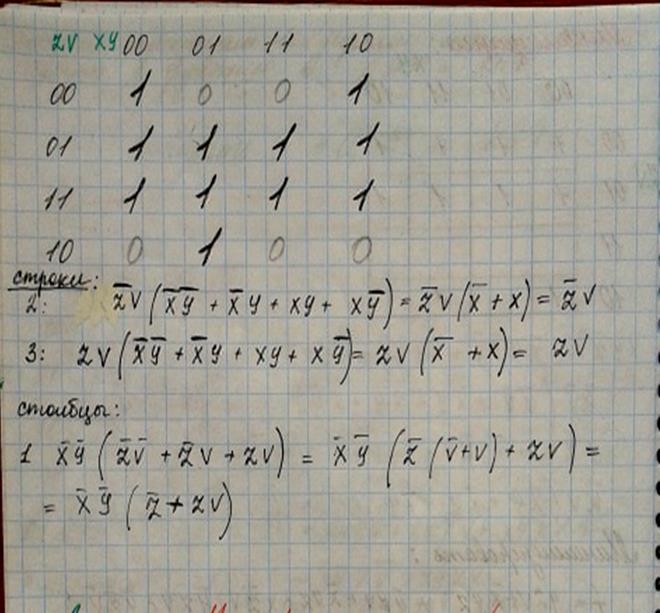 zv xy 00 01 11 10
00 1 0 0 1
01 1 1 1 1
11 1 1 1 1
10 0 1 0 0
строки:
2: z̄v(x̄ȳ + x̄y + xy + xȳ) = z̄v(x̄ + x) = z̄v
3: zv(x̄ȳ + x̄y + xy + xȳ) = zv(x̄ + x) = zv
столбцы:
1 x̄ȳ(z̄v̄ + z̄v + zv) = x̄ȳ(z̄(v̄+v) + zv) =
= x̄ȳ(z̄ + zv)